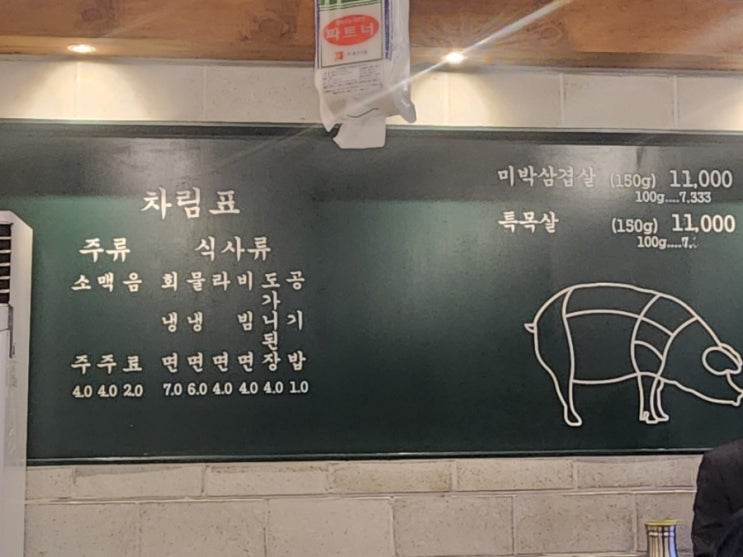 파트너
차림표
주류
소주 4.0
맥주 4.0
음료 2.0
식사류
회냉면 7.0
물냉면 6.0
라면 4.0
비빔면 4.0
도가니된장 4.0
공기밥 1.0
미박삼겹살 (150g) 11,000
100g....7,333
특목살 (150g) 11,000
100g....7,